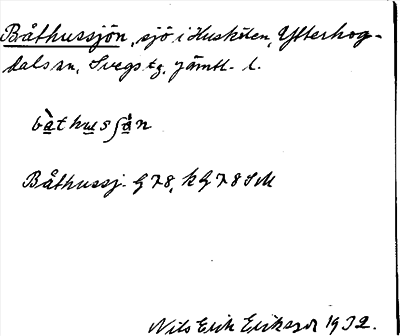 Båthussjön, sjö i Huskölen, Ytterhog-
dals sn, Svegs tg, Jämtl. l.
bàthusʃån
Båthussj. G 78, k G 78 SM
Nils Erik Eriksson 1932.